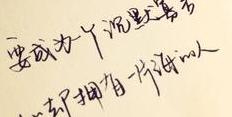 要成为一个沉默寡言
却拥有一片海的人